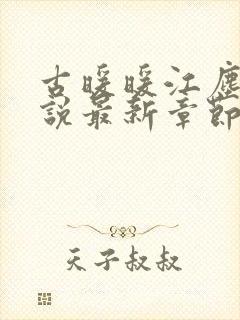 古暖暖江尘
说最新章节
天子叔叔